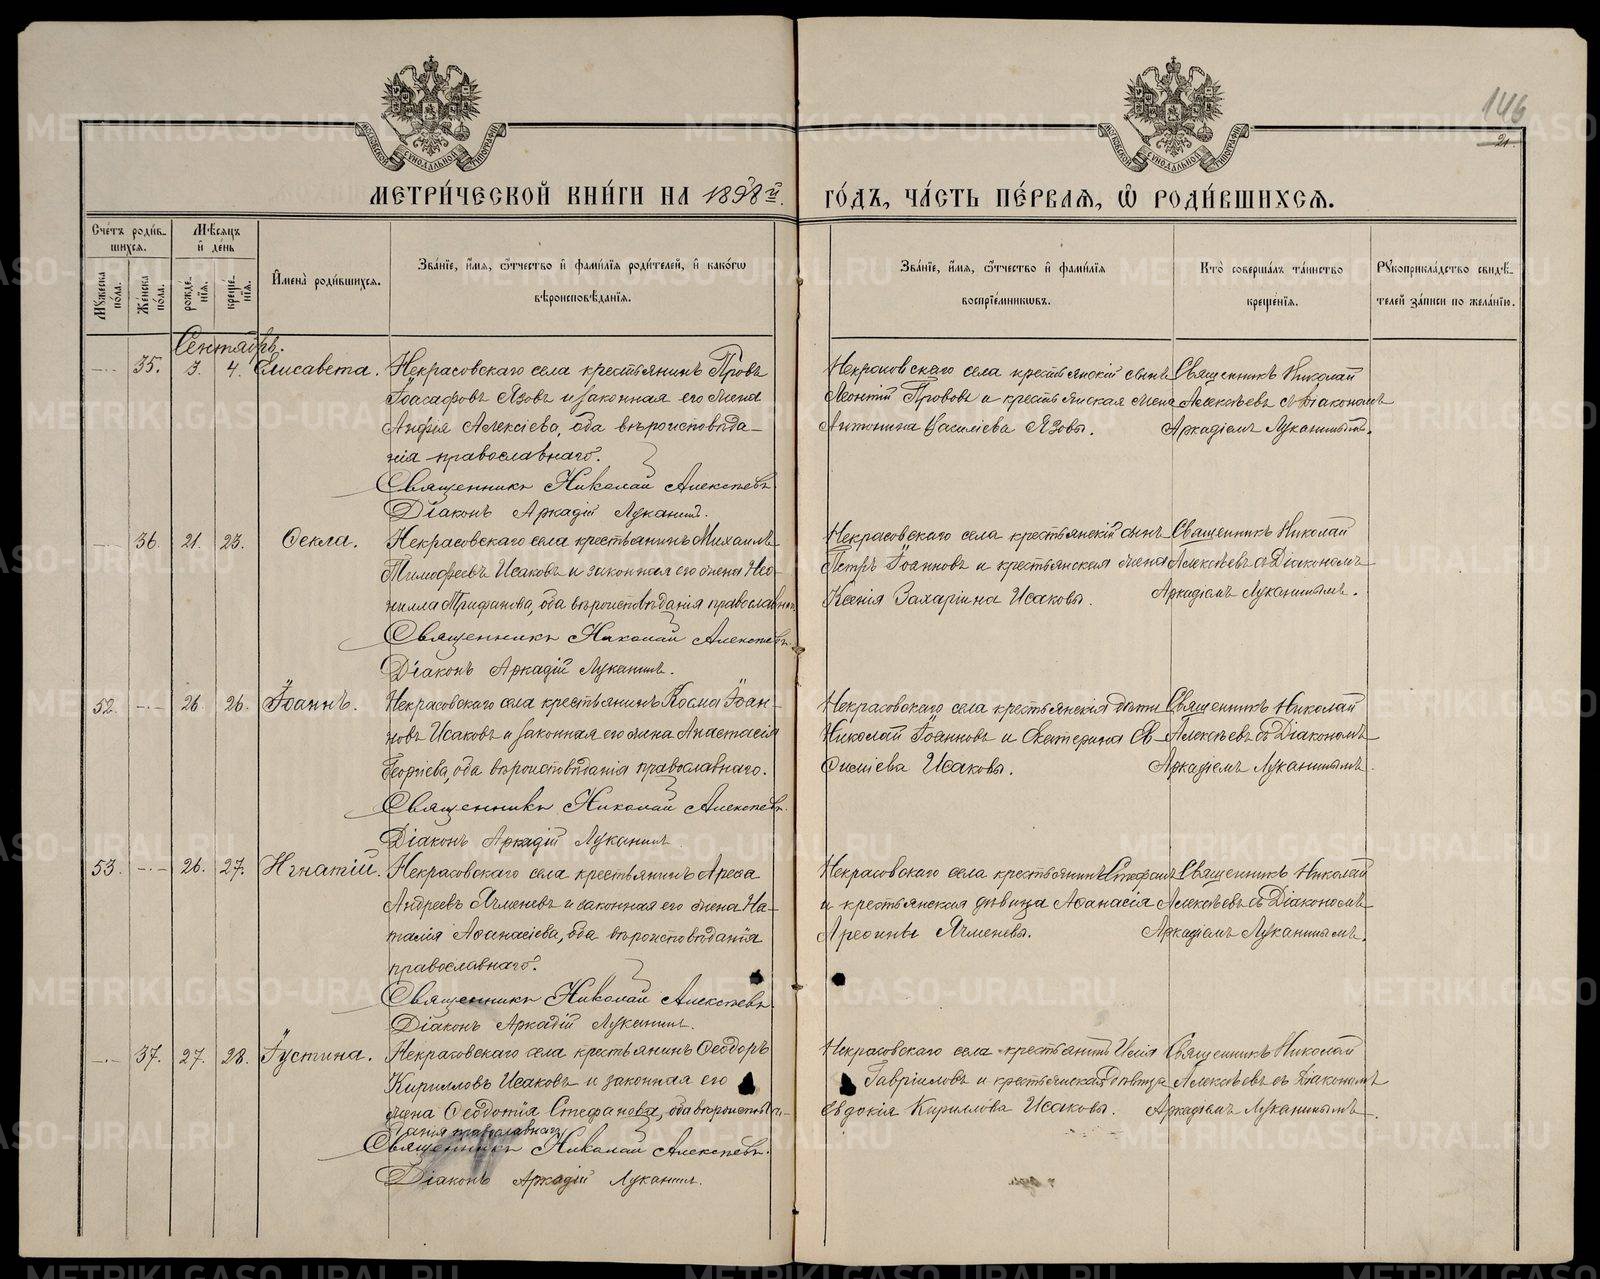 146
21.
МОСКОВСКОЙ СУНОДАЛЬНОЙ ТИПОГРАФІИ
МОСКОВСКОЙ СУНОДАЛЬНОЙ ТИПОГРАФІИ
МЕТРИ́ЧЕСКОЙ КНИ́ГИ НА 1898й.
ГО́ДЪ, ЧА́СТЬ ПЕ́РВАѦ, Ѡ РОДИ́ВШИХСѦ.
Сче́тъ роди́в-
шихсѧ.
Мѣ́сѧцъ
и҆ де́нь
Му́жеска по́ла.
Же́нска по́ла.
рожде́-
нїѧ.
креще́-
нїѧ.
И҆мена̀ роди́вшихсѧ.
Зва́нїе, и҆́мѧ, ѻ҆́тчество и҆ фамѝлїѧ роди́телей, и҆ како́гѡ
вѣроисповѣ́данїѧ.
Зва́нїе, и҆́мѧ, ѻ҆́тчество и҆ фамѝлїѧ
воспрїе́мникѡвъ.
Кто̀ соверша́лъ та́инство
креще́нїѧ.
Рꙋкоприкла́дство свидѣ́-
телей за́писи по жела́нїю.
Сентябрь.
35. 3. 4. Елисавета.
Некрасовскаго села крестьянинъ Провъ
Іоасафовъ Язовъ и законная его жена
Анфія Алексіева, оба вѣроисповѣда-
нія православнаго.
Священникъ Николай Алексѣевъ
Діаконъ Аркадій Луканинъ.
Некрасовскаго села крестьянскій сынъ
Леонтій Прововъ и крестьянская жена
Антонина Василіева Язовы.
Священникъ Николай
Алексѣевъ съ Діакономъ
Аркадіемъ Луканинымъ.
36. 21. 23. Ѳекла.
Некрасовскаго села крестьянинъ Михаилъ
Тимофеевъ Исаковъ и законная его жена Нео-
нилла Трифанова, оба вѣроисповѣданія православнаго.
Священникъ Николай Алексѣевъ
Діаконъ Аркадій Луканинъ.
Некрасовскаго села крестьянскій сынъ
Петръ Іоанновъ и крестьянская жена
Ксенія Захаріина Исаковы.
Священникъ Николай
Алексѣевъ съ Діакономъ
Аркадіемъ Луканинымъ.
52. 26. 26. Іоаннъ.
Некрасовскаго села крестьянинъ Косма Іоан-
новъ Исаковъ и законная его жена Анастасія
Георгіева, оба вѣроисповѣданія православнаго.
Священникъ Николай Алексѣевъ.
Діаконъ Аркадій Луканинъ
Некрасовскаго села крестьянскія дѣти
Николай Іоанновъ и Екатерина Ев-
сигніева Исаковы.
Священникъ Николай
Алексѣевъ съ Діакономъ
Аркадіемъ Луканинымъ.
53. 26. 27. Игнатій.
Некрасовскаго села крестьянинъ Арефа
Андреевъ Ячменевъ и законная его жена На-
талія Аѳанасіева, оба вѣроисповѣданія
православнаго.
Священникъ Николай Алексѣевъ
Діаконъ Аркадій Луканинъ.
Некрасовскаго села крестьянинъ Стефанъ
и крестьянская дѣвица Аѳанасія
Ареѳины Ячменевы.
Священникъ Николай
Алексѣевъ съ Діакономъ
Аркадіемъ Луканинымъ.
37. 27. 28. Іустина.
Некрасовскаго села крестьянинъ Ѳеодоръ
Кирилловъ Исаковъ и законная его
жена Ѳеодотія Стефанова, оба вѣроисповѣ-
данія православнаго
Священникъ Николай Алексѣевъ.
Діаконъ Аркадій Луканинъ.
Некрасовскаго села крестьянинъ Илія
Гавріиловъ и крестьянская дѣвица
Евдокія Кириллова Исаковы.
Священникъ Николай
Алексѣевъ съ Діакономъ
Аркадіемъ Луканинымъ.
METRIKI.GASO-URAL.RU